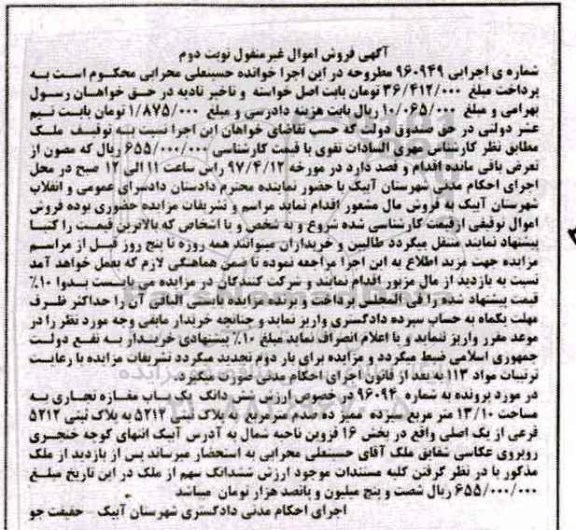 آگهی فروش اموال غیرمنقول نوبت دوم
شماره ی اجرایی ۹۶۰۹۴۹ مطروحه در این اجرا خوانده حسینعلی محرابی محکوم است به
پرداخت مبلغ ۳۶/۴۱۲/۰۰۰ تومان بابت اصل خواسته و تاخیر تادیه در حق خواهان رسول
بهرامی و مبلغ ۱۰/۰۶۵/۰۰۰ ریال بابت هزینه دادرسی و مبلغ ۱/۸۷۵/۰۰۰ تومان بابت نیم
عشر دولتی در حق صندوق دولت که حسب تقاضای خواهان این اجرا نسبت به توقیف ملک
مطابق نظر کارشناس مهری السادات تقوی با قیمت کارشناسی ۶۵۵/۰۰۰/۰۰۰ ریال که مصون از
تعرض باقی مانده اقدام و قصد دارد در مورخه ۹۷/۴/۱۲ راس ساعت ۱۱ الی ۱۲ صبح در محل
اجرای احکام مدنی شهرستان آبیک با حضور نماینده محترم دادستان دادسرای عمومی و انقلاب
شهرستان آبیک به فروش مال مشعور اقدام نماید مراسم و تشریفات مزایده حضوری بوده فروش
اموال توقیفی ازقیمت کارشناسی شده شروع و به شخص و یا اشخاص که بالاترین قیمت را کتبا
پیشنهاد نمایند منتقل میگردد طالبین و خریداران میتوانند همه روزه تا پنج روز قبل از مراسم
مزایده جهت مزید اطلاع به این اجرا مراجعه نموده تا ضمن هماهنگی لازم که بعمل خواهد آمد
نسبت به بازدید از مال مزبور اقدام نمایند و شرکت کنندگان در مزایده می بایست بدوا ۱۰٪
قیمت پیشنهاد شده را فی المجلس پرداخت و برنده مزایده بایستی الباقی آن را حداکثر ظرف
مهلت یکماه به حساب سپرده دادگستری واریز نماید و چنانچه خریدار مابقی وجه مورد نظر را در
موعد مقرر واریز ننماید و یا اعلام انصراف نماید مبلغ ۱۰٪ پیشنهادی خریدار به نفع دولت
جمهوری اسلامی ضبط میگردد و مزایده برای بار دوم تجدید میگردد تشریفات مزایده با رعایت
ترتیبات مواد ۱۱۳ به بعد از قانون اجرای احکام مدنی صورت میگیرد.
در مورد پرونده به شماره ۹۶۰۹۴۰ در خصوص ارزش شش دانگ یک باب مغازه تجاری به
مساحت ۱۳/۱۰ متر مربع سیزده ممیز ده صدم مترمربع به پلاک ثبتی ۵۲۱۲ به پلاک ثبتی ۵۲۱۲
فرعی از یک اصلی واقع در بخش ۱۶ قزوین ناحیه شمال به آدرس آبیک انتهای کوچه خنجری
روبروی عکاسی شقایق ملک آقای حسینعلی محرابی به استحضار میرساند پس از بازدید از ملک
مذکور با در نظر گرفتن کلیه مستندات موجود ارزش ششدانگ سهم از ملک در این تاریخ مبلغ
۶۵۵/۰۰۰/۰۰۰ ریال شصت و پنج میلیون و پانصد هزار تومان میباشد
اجرای احکام مدنی دادگستری شهرستان آبیک - حقیقت جو